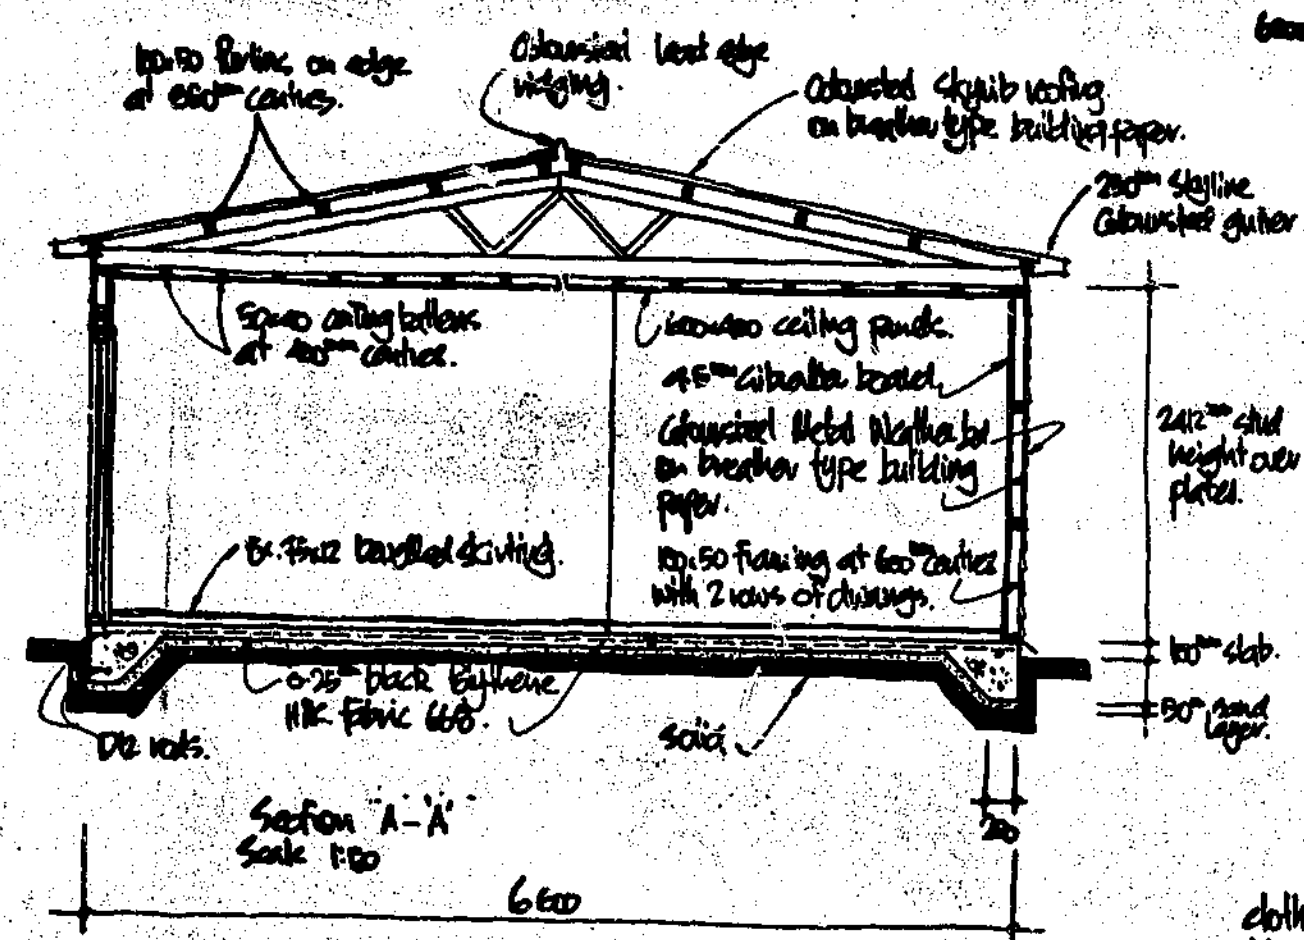 100x50 Purlins on edge
at 860mm centres.
Coloursteel lead edge
ridging.
Coloursteel Skyrib roofing
on breather type building paper.
230mm Skyline
Coloursteel gutter
ceiling battens
at 400mm centres.
ceiling panels.
Gibralter board.
Coloursteel Metal Weatherbd
on breather type building
paper.
100x50 Framing at 600mm centres
with 2 rows of dwangs.
2412mm stud
height over
plates.
Ex. 75x12 bevelled skirting.
0.25mm black Polythene
HRC Fabric 668.
D12 rods.
solid
100mm slab.
50mm sand
layer.
200
Section "A-A"
Scale 1:50
6600
cloth